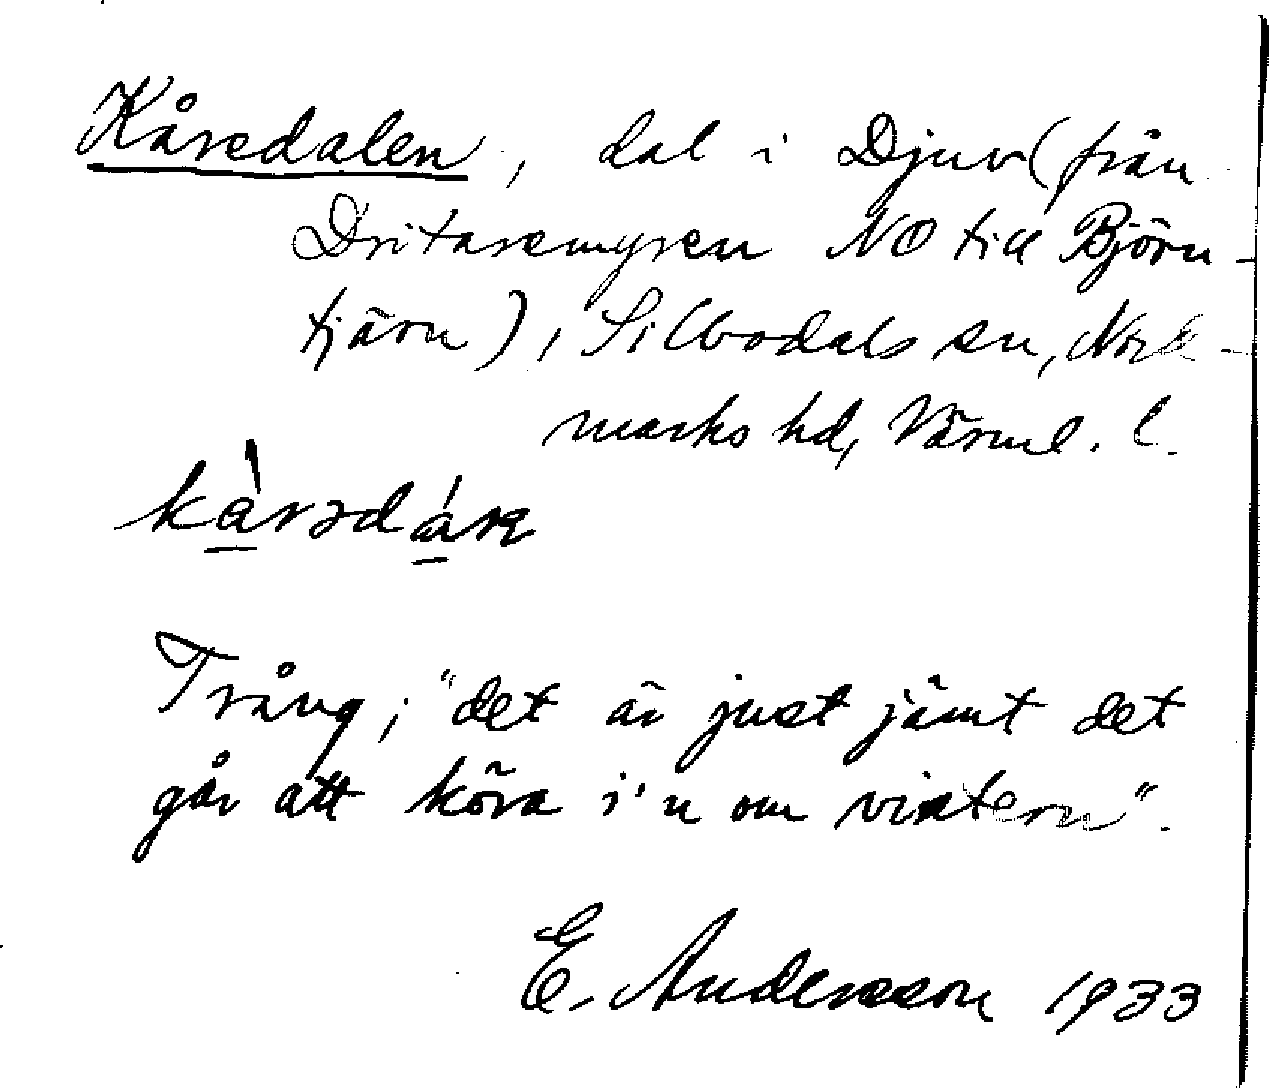 Kåredalen, dal i Djuv (från
Dritaremyren NO till Björn-
tjärn), Silbodals sn, Nord-
marks hd, Värml. l.
Trång; "det är just jämt det
går att köra i'n om vintern".
E. Andersson 1933